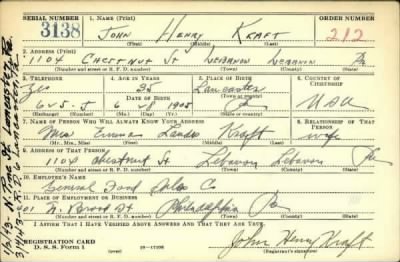 SERIAL NUMBER 1. NAME (Print) ORDER NUMBER
3138 JOHN HENRY KRAFT 212
(First) (Middle) (Last)
2. ADDRESS (Print)
1104 CHESTNUT ST LEBANON LEBANON Pa
(Number and street or R. F. D. number) (Town) (County) (State)
3. TELEPHONE 4. AGE IN YEARS 5. PLACE OF BIRTH 6. COUNTRY OF CITIZENSHIP
Yes 35 Lancaster
DATE OF BIRTH
625-J 6 1905 Pa USA
(Exchange) (Number) (Mo.) (Day) (Yr.) (State or country)
7. NAME OF PERSON WHO WILL ALWAYS KNOW YOUR ADDRESS 8. RELATIONSHIP OF THAT PERSON
Mrs Emma Kraft wife
(Mr., Mrs., Miss) (First) (Middle) (Last)
9. ADDRESS OF THAT PERSON
1104 Chestnut St. Lebanon Lebanon Pa
(Number and street or R. F. D. number) (Town) (County) (State)
10. EMPLOYER'S NAME
General Food Sales Co
11. PLACE OF EMPLOYMENT OR BUSINESS
401 N. Broad St Philadelphia Pa
(Number and street or R. F. D. number) (Town) (County) (State)
I AFFIRM THAT I HAVE VERIFIED ABOVE ANSWERS AND THAT THEY ARE TRUE.
REGISTRATION CARD
D. S. S. Form 1
John Henry Kraft
(Registrant's signature)